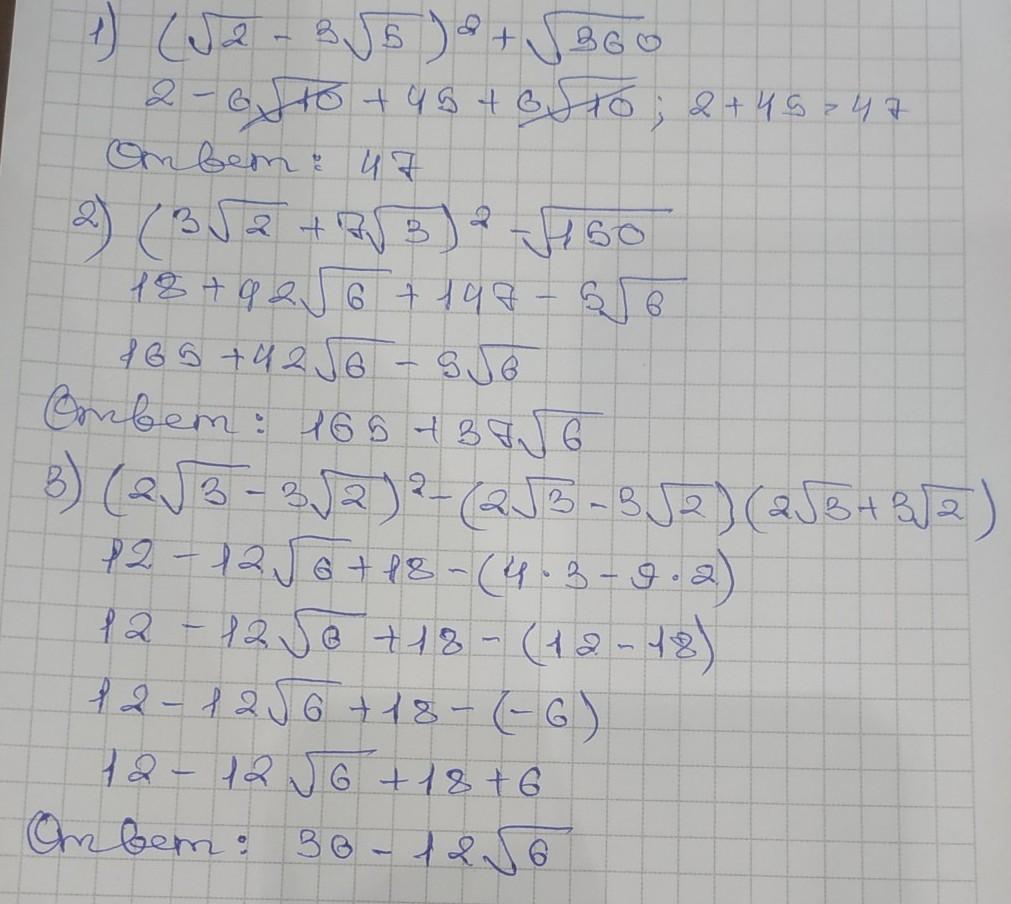 1) (√2 - 3√5)² + √360
2 - 6√10 + 45 + 6√10; 2 + 45 = 47
Ответ: 47
2) (3√2 + 7√3)² - √150
18 + 42√6 + 147 - 5√6
165 + 42√6 - 5√6
Ответ: 165 + 37√6
3) (2√3 - 3√2)² - (2√3 - 3√2)(2√3 + 3√2)
12 - 12√6 + 18 - (4·3 - 9·2)
12 - 12√6 + 18 - (12 - 18)
12 - 12√6 + 18 - (-6)
12 - 12√6 + 18 + 6
Ответ: 36 - 12√6